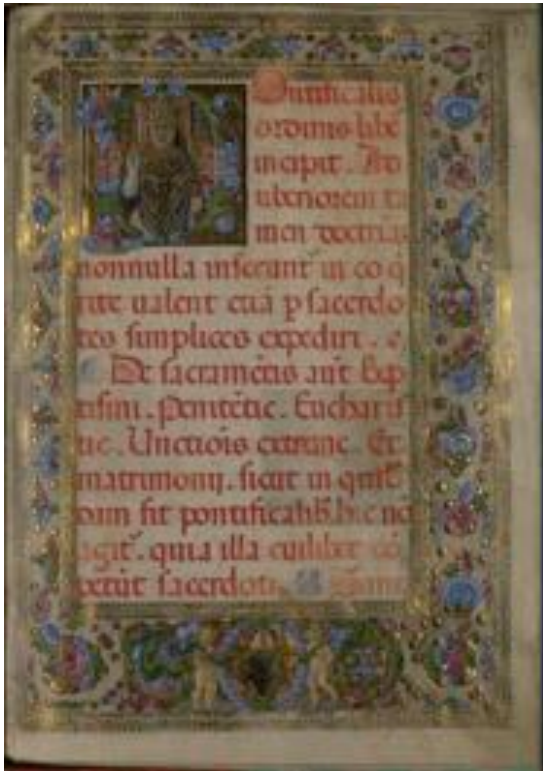 Pontificalis
ordinis libē
incipit. Ad
uberiorem ta
men doctrinā
nonnulla inserunt̄ in eo q̄
rite ualent etiā p sacerdo
tes simplices expediri.
De sacramētis aūt bap
tismi. Penitētie. Eucharis
tie. Unctiōis extreme. Et
matrimonij. sicut in
dum fit pontificalib. hic nō
agit̄. quia illa cuilibet cō
petūt sacerdoti.